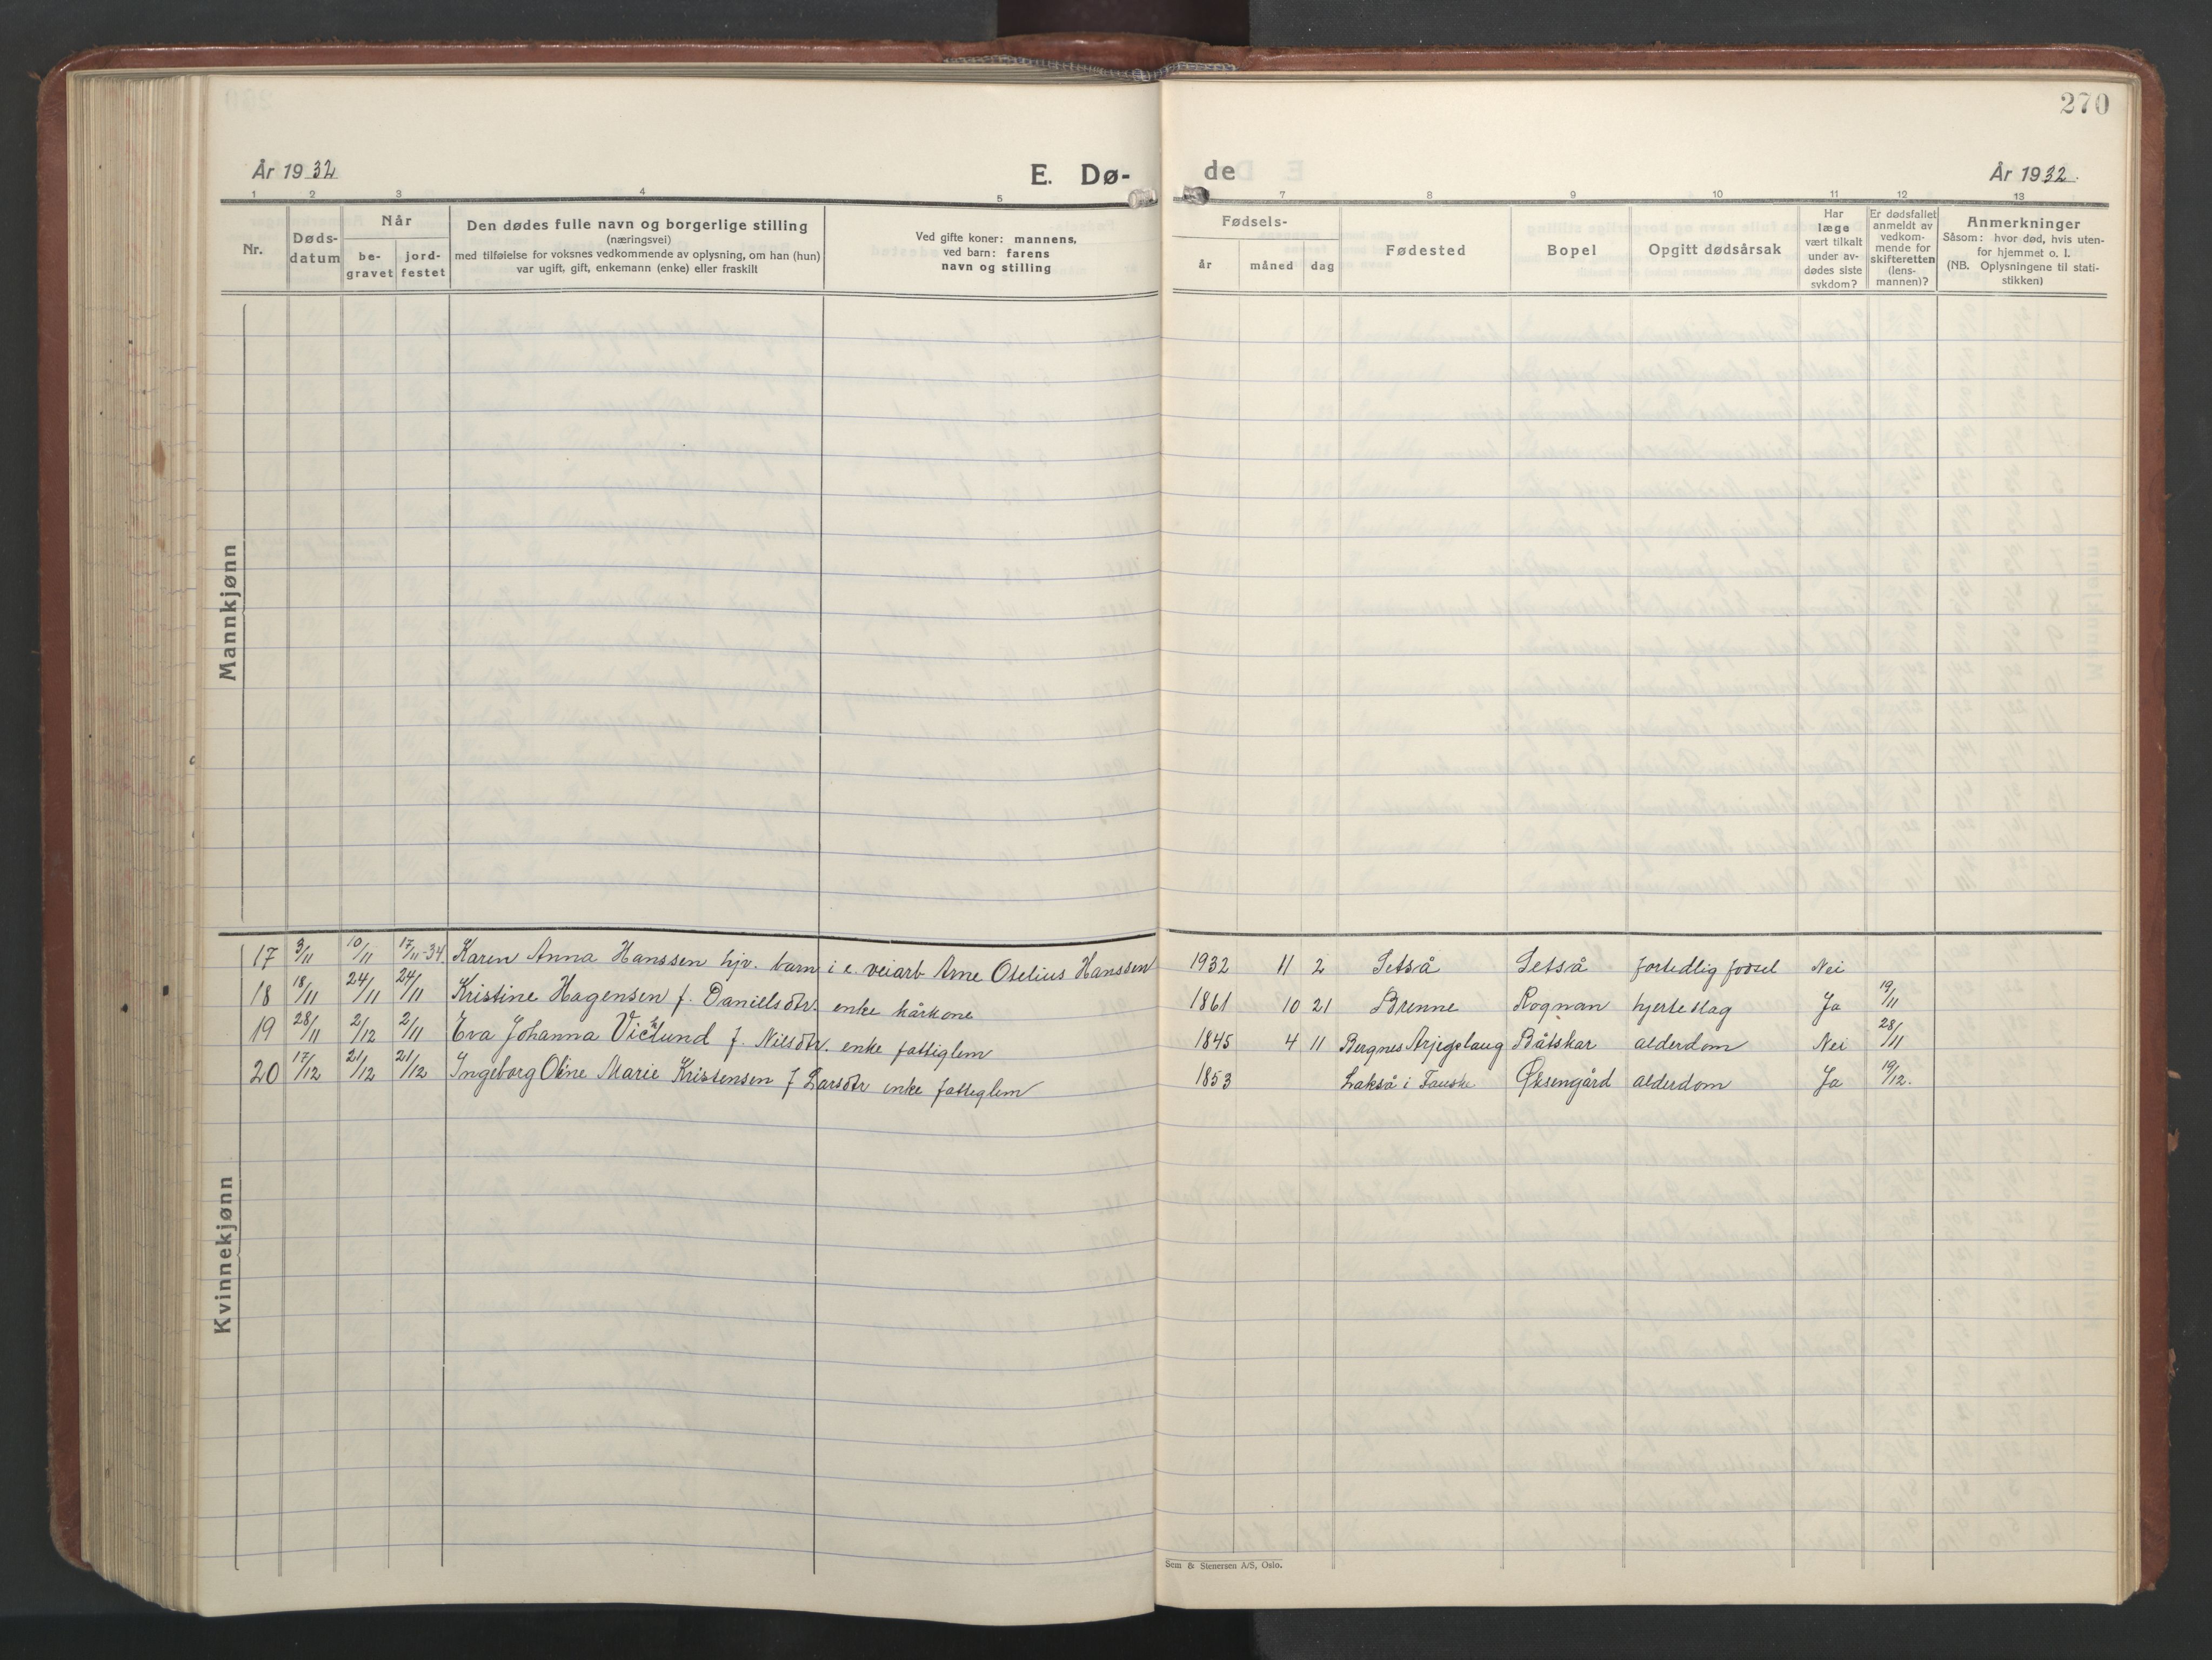 270
År 1932
E. Dø-
de
År 1932.
1 2 3 4 5 7 8 9 10 11 12 13
Nr.
Døds-
datum
Når
be-
gravet
jord-
festet
Den dødes fulle navn og borgerlige stilling
(næringsvei)
med tilføielse for voksnes vedkommende av oplysning, om han (hun)
var ugift, gift, enkemann (enke) eller fraskilt
Ved gifte koner: mannens,
ved barn: farens
navn og stilling
Fødsels-
år måned dag
Fødested
Bopel
Opgitt dødsårsak
Har
læge
vært tilkalt
under av-
dødes siste
sykdom?
Er dødsfallet
anmeldt av
vedkom-
mende for
skifteretten
(lens-
mannen)?
Anmerkninger
Såsom: hvor død, hvis uten-
for hjemmet o. l.
(NB. Oplysningene til stati-
stikken)
Mannkjønn
17 3/11 10/11 17/11-34 Karen Anna Hanssen hjv. barn i e. veiarb Arne Otelius Hanssen 1932 11 2 Setså Setså fortidlig fødsel Nei
18 18/11 24/11 24/11 Kristine Hagensen f. Danielsdtr. enke kårkone 1861 10 21 Brenne Rognan hjerteslag Ja 19/11
19 28/11 2/12 2/11 Eva Johanna f. Nilsdtr. enke fattiglem 1845 4 11 Bergnes Arjeplaug Båtskar alderdom Nei 28/11
20 17/12 21/12 21/12 Ingeborg Oline Marie Kristensen f Larsdtr enke fattiglem 1853 Lakså i Fauske Øksengård alderdom Ja 19/12.
Kvinnekjønn
Sem & Stenersen A/S, Oslo.